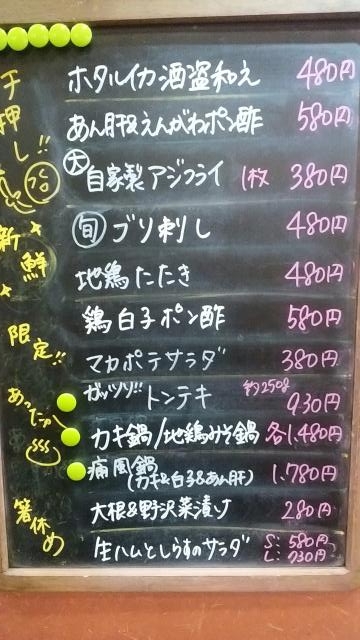 ホタルイカ酒盗和え 480円
あん肝&えんがわポン酢 580円
大 自家製アジフライ 1枚 380円
旬 ブリ刺し 480円
地鶏たたき 480円
鶏白子ポン酢 580円
マカポテサラダ 380円
ガッツリ!! トンテキ 約250g 930円
カキ鍋/地鶏みそ鍋 各1,480円
痛風鍋 1,780円
(カキ&白子&あん肝)
大根&野沢菜漬け 280円
生ハムとしらすのサラダ S: 580円
L: 930円
押し!!
新鮮
限定!!
あったか
箸休め